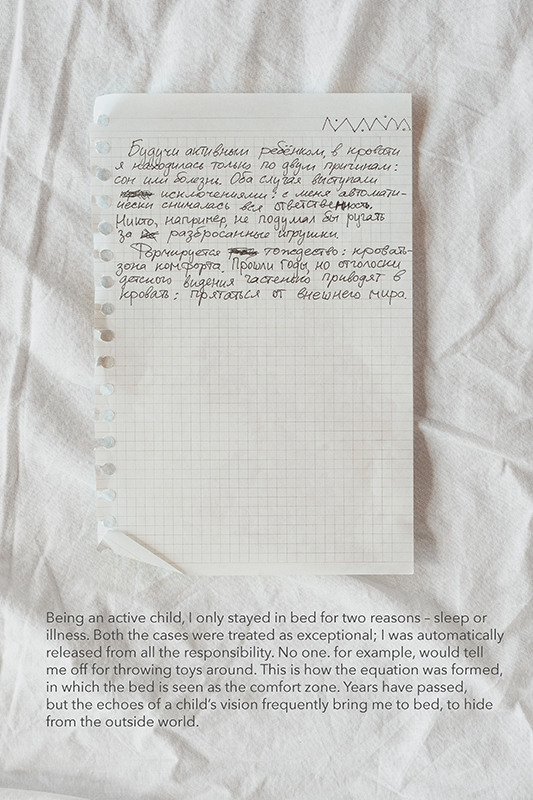 Будучи активным ребёнком, в кровати
я находилась только по двум причинам:
сон или болезнь. Оба случая выступали
исключениями: с меня автомати-
чески снималась вся ответственность.
Никто, например, не подумал бы ругать
за разбросанные игрушки.
Формируется тождество: кровать-
зона комфорта. Прошли годы, но отголоски
детского видения частенько приводят в
кровать: прятаться от внешнего мира.
Being an active child, I only stayed in bed for two reasons – sleep or
illness. Both the cases were treated as exceptional; I was automatically
released from all the responsibility. No one. for example, would tell
me off for throwing toys around. This is how the equation was formed,
in which the bed is seen as the comfort zone. Years have passed,
but the echoes of a child’s vision frequently bring me to bed, to hide
from the outside world.